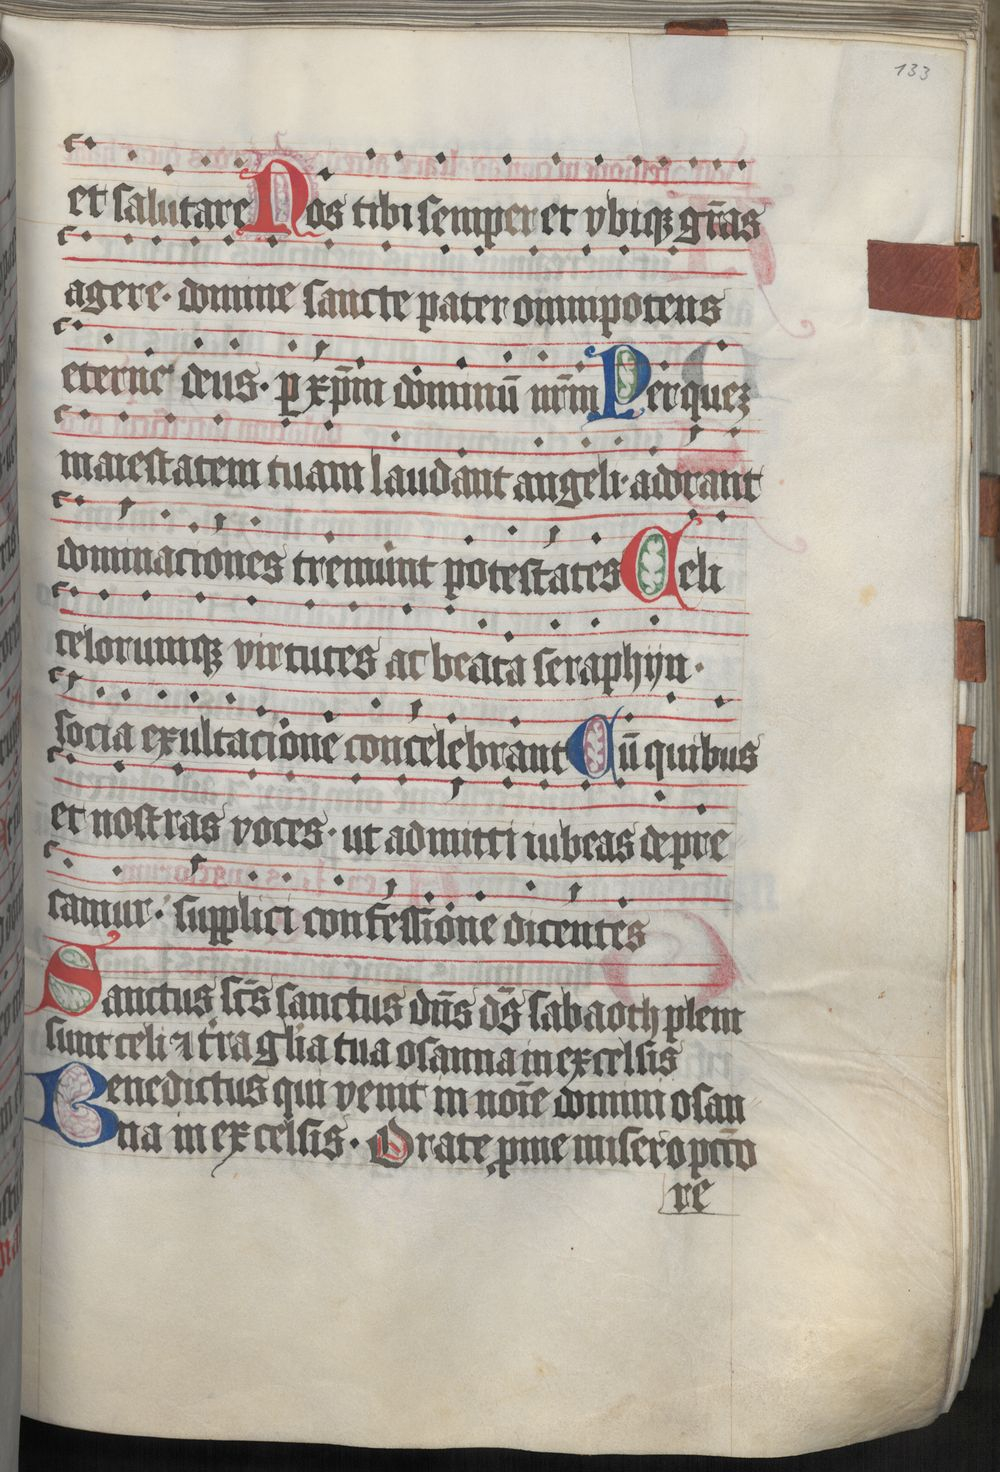 133
et salutare Nos tibi semper et vbiqꝫ gr̄as
agere· domine sancte pater omnipotens
eterne deus· ꝑ xp̄m dominū nr̄m Per quez
maiestatem tuam laudant angeli· adorant
dominaciones tremunt potestates Celi
celorumqꝫ virtutes ac beata seraphyn·
socia exultacione concelebrant Cū quibus
et nostras voces· ut admitti iubeas depre
camur· supplici confessione dicentes
Sanctus scs̄ sanctus dn̄s ds̄ sabaoth pleni
sunt celi ⁊ tr̄a glīa tua osanna in excelsis
Benedictus qui venit in noīe domini osan
na in excelsis· Orate ꝓ me misero pctō
re